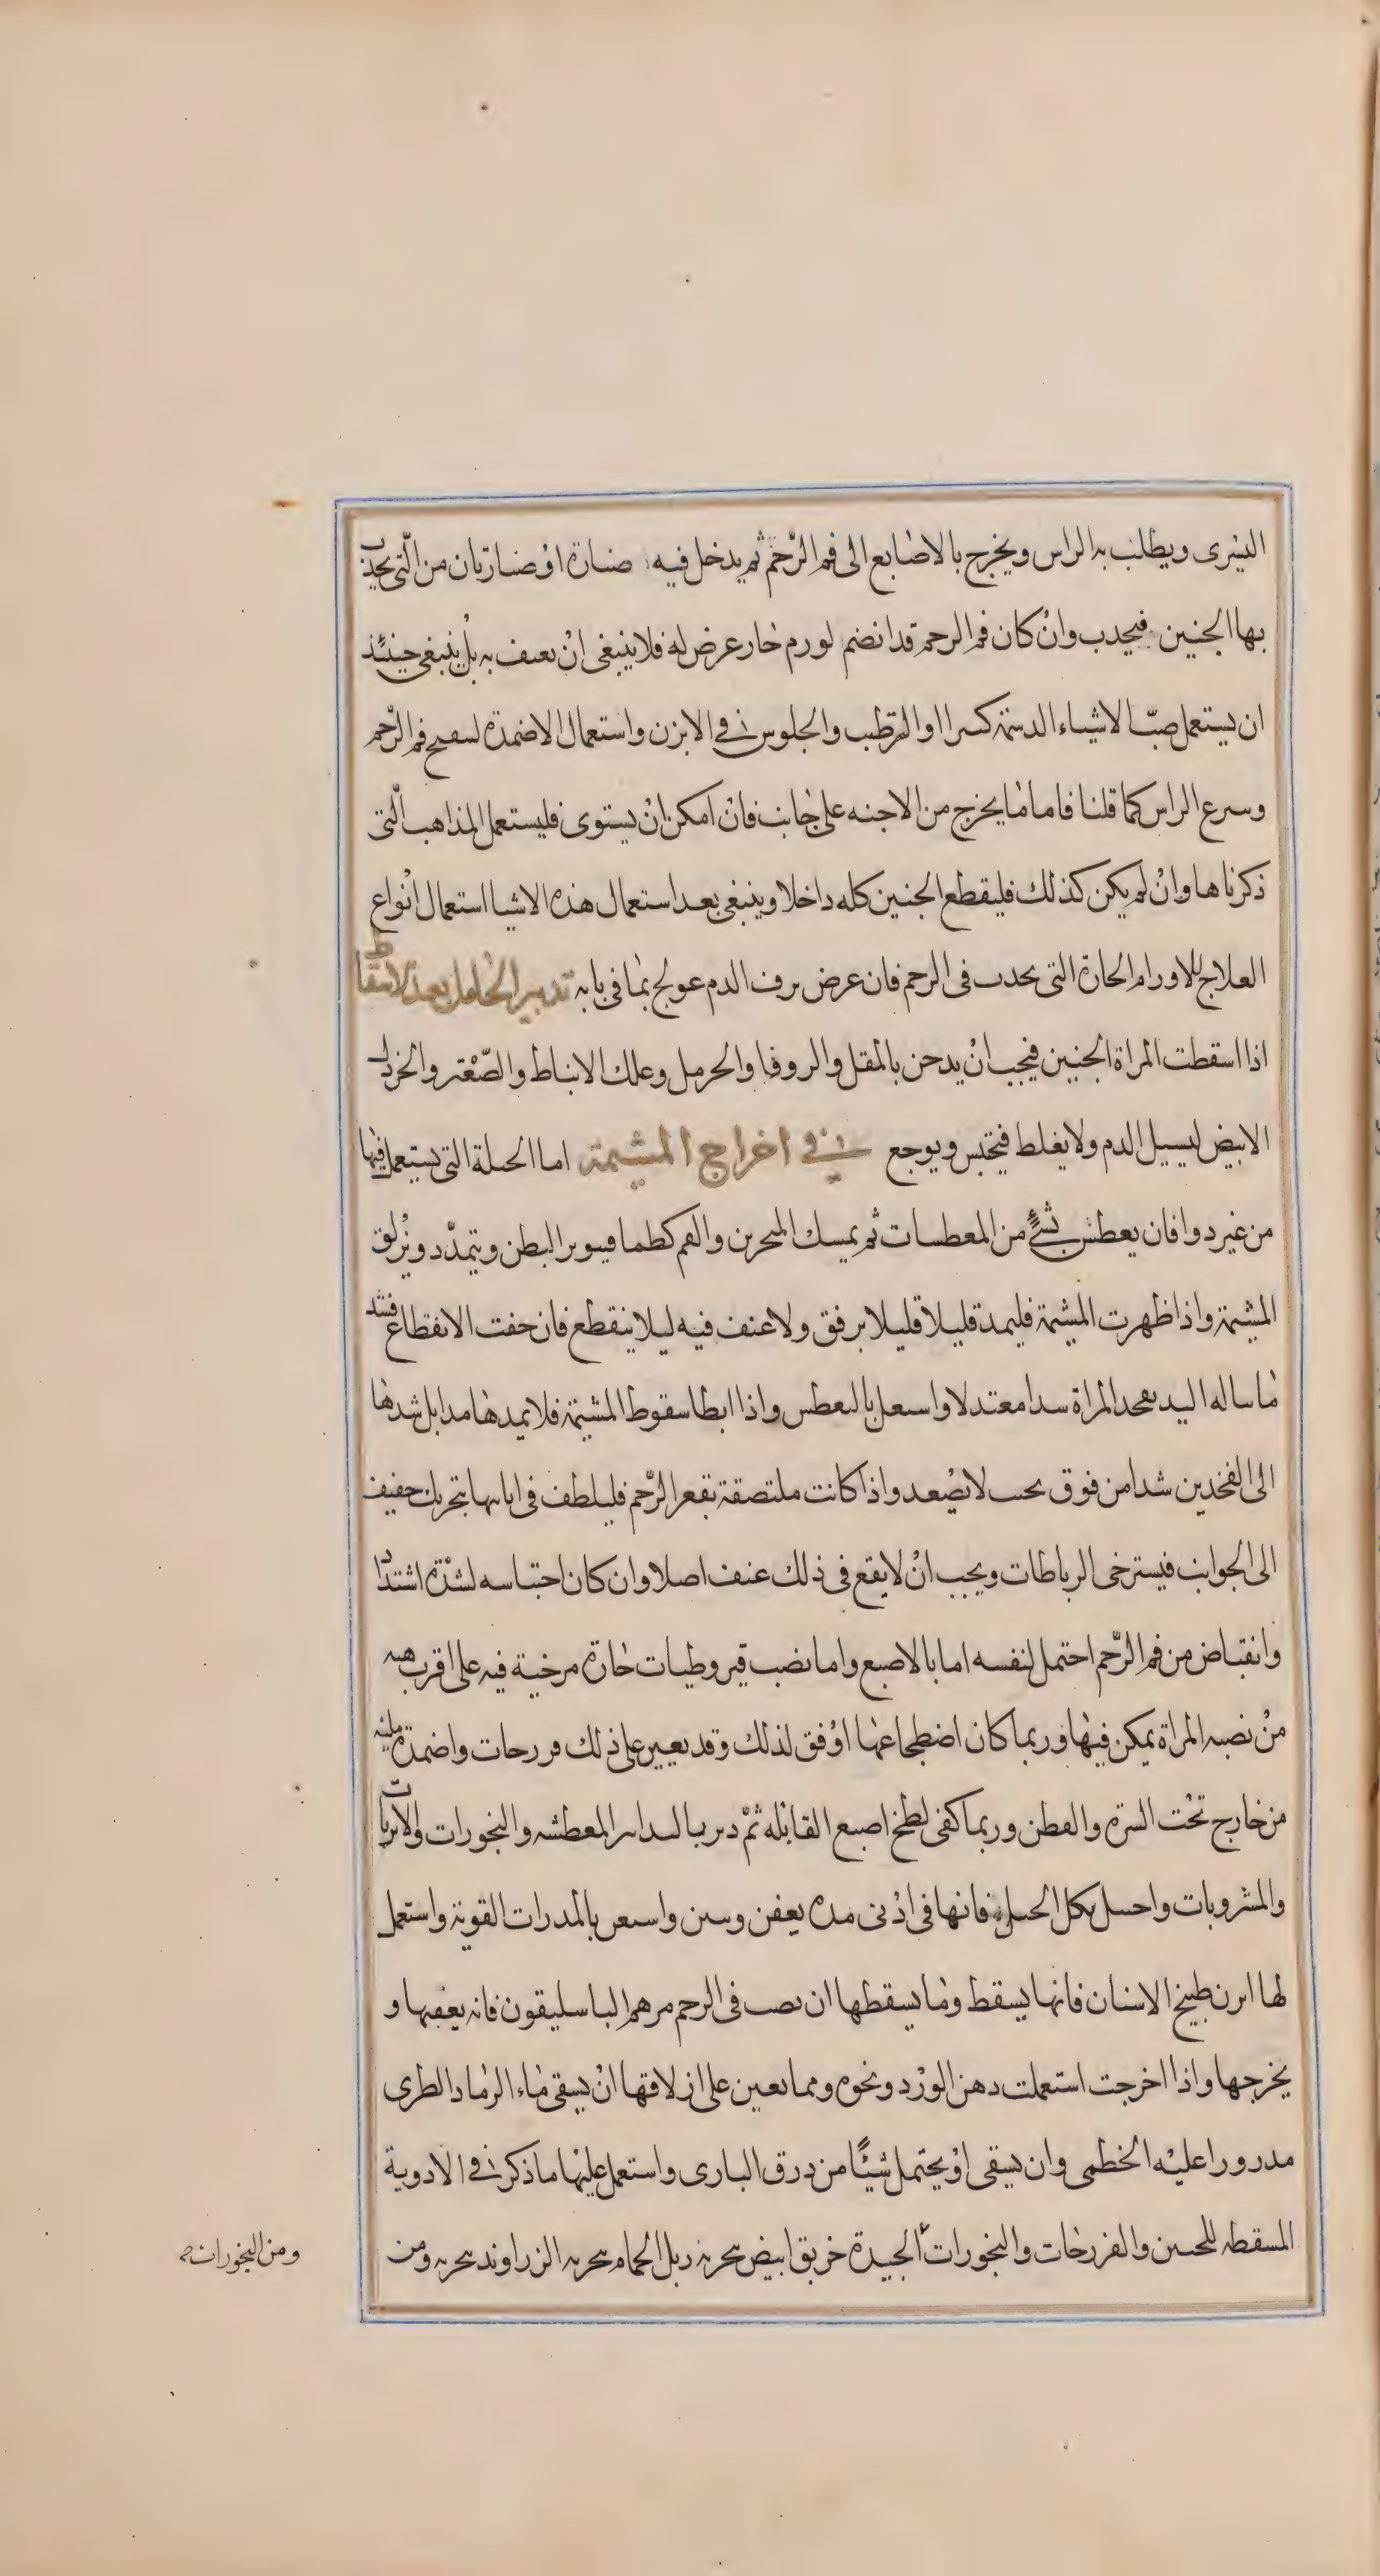 اليسرى ويطلب به الراس ويخرج بالاصابع الى فم الرّحم ثم يدخل فيه صنارة اوْ صنارتان من الّتى يجذب
بها الجنين فيجذب وانْ كان فم الرحم قد انضم لورم حار عرض له فلا ينبغى انْ يعنف به بلْ ينبغى حينئذ
ان يستعمل صبّ الاشياء الدسمة كثيرا والترطب والجلوس فى الابزن واستعمال الاضمدة لينفتح فم الرّحم
وينزع الراس كما قلنا فاما ما يخرج من الاجنه على جانب فانْ امكن انْ يستوى فليستعمل المذاهب الّتى
ذكرناها وانْ لم يكن كذلك فليقطع الجنين كله داخلا وينبغى بعد استعمال هذه الاشيا استعمال انْواع
العلاج للاورام الحارة التى يحدث فى الرحم فان عرض نزف الدم عولج بما فى بابه تدبير الحامل بعد الاسقاط
اذا اسقطت المراة الجنين فيجب انْ يدخن بالمقل والزوفا والحرمل وعلك الانباط والصّعْتر والخردل
الابيض ليسيل الدم ولا يغلظ فيحتبس ويوجع فى اخراج المشيمة اما الحيلة التى يستعمل فيها
من غير دوا فان يعطش بشئٍ من المعطسات ثم يمسك المنخرين والفم كظما فيتوتر البطن ويتمدّد ويُزلق
المشيمة واذا ظهرت المشيمة فليمد قليلا قليلا برفق ولا عنف فيه ليلا ينقطع فان خفت الانقطاع فشد
ما ساله اليد بفخد المراة شدا معتدلا واستعمل بالتعطيس واذا ابطا سقوط المشيمة فلا يمدها مدا بل شدها
الى الفخدين شدا من فوق بحيث لا يصْعد واذا كانت ملتصقة بقعر الرّحم فليلطف فى ابانتها بتحريك خفيف
الى الجوانب فيسترخى الرباطات ويجب انْ لا يقع فى ذلك عنف اصلا وان كان احتباسه لشدّة اشتداد
وانقباض من فم الرّحم احتمل لنفسه اما بالاصبع واما بصب قيروطيات حارة مرخية فيه على اقرب هيه
منْ نصبه المراة يمكن فيها وربما كان اضطجاعها اوْفق لذلك وقد يعين على ذلك فرزجات واضمدة ملينه
من خارج تحْت السرّة والقطن وربما كفى لطخ اصبع القابله ثمّ دبر بالتدابير المعطشه والبخورات والابزنات
والمشروبات واحتيل بكل الحيل فانها فى ادْنى مدة يعفن وينتن واستعن بالمدرات القوية واستعمل
لها ابزن طبيخ الاسنان فانها يسقط وما يسقطها ان تصب فى الرحم مرهم الباسليقون فانه يعفنها و
يخرجها واذا اخرجت استعملت دهن الورْد ونحوه ومما يعين على ازلاقها انْ يسقى ماء الرماد الطرى
مدرورا عليْه الخطمى وان يسقى اوْ يحتمل شيئًا من ذرق البازى واستعمل عليْها ما ذكر فى الادوية
المسقطه للجنين والفرزجات والبخورات الجيدة خربق ابيض يبخر به زبل الحمام يبخر به الزراوند يبخر به ومن
ومن البخورات